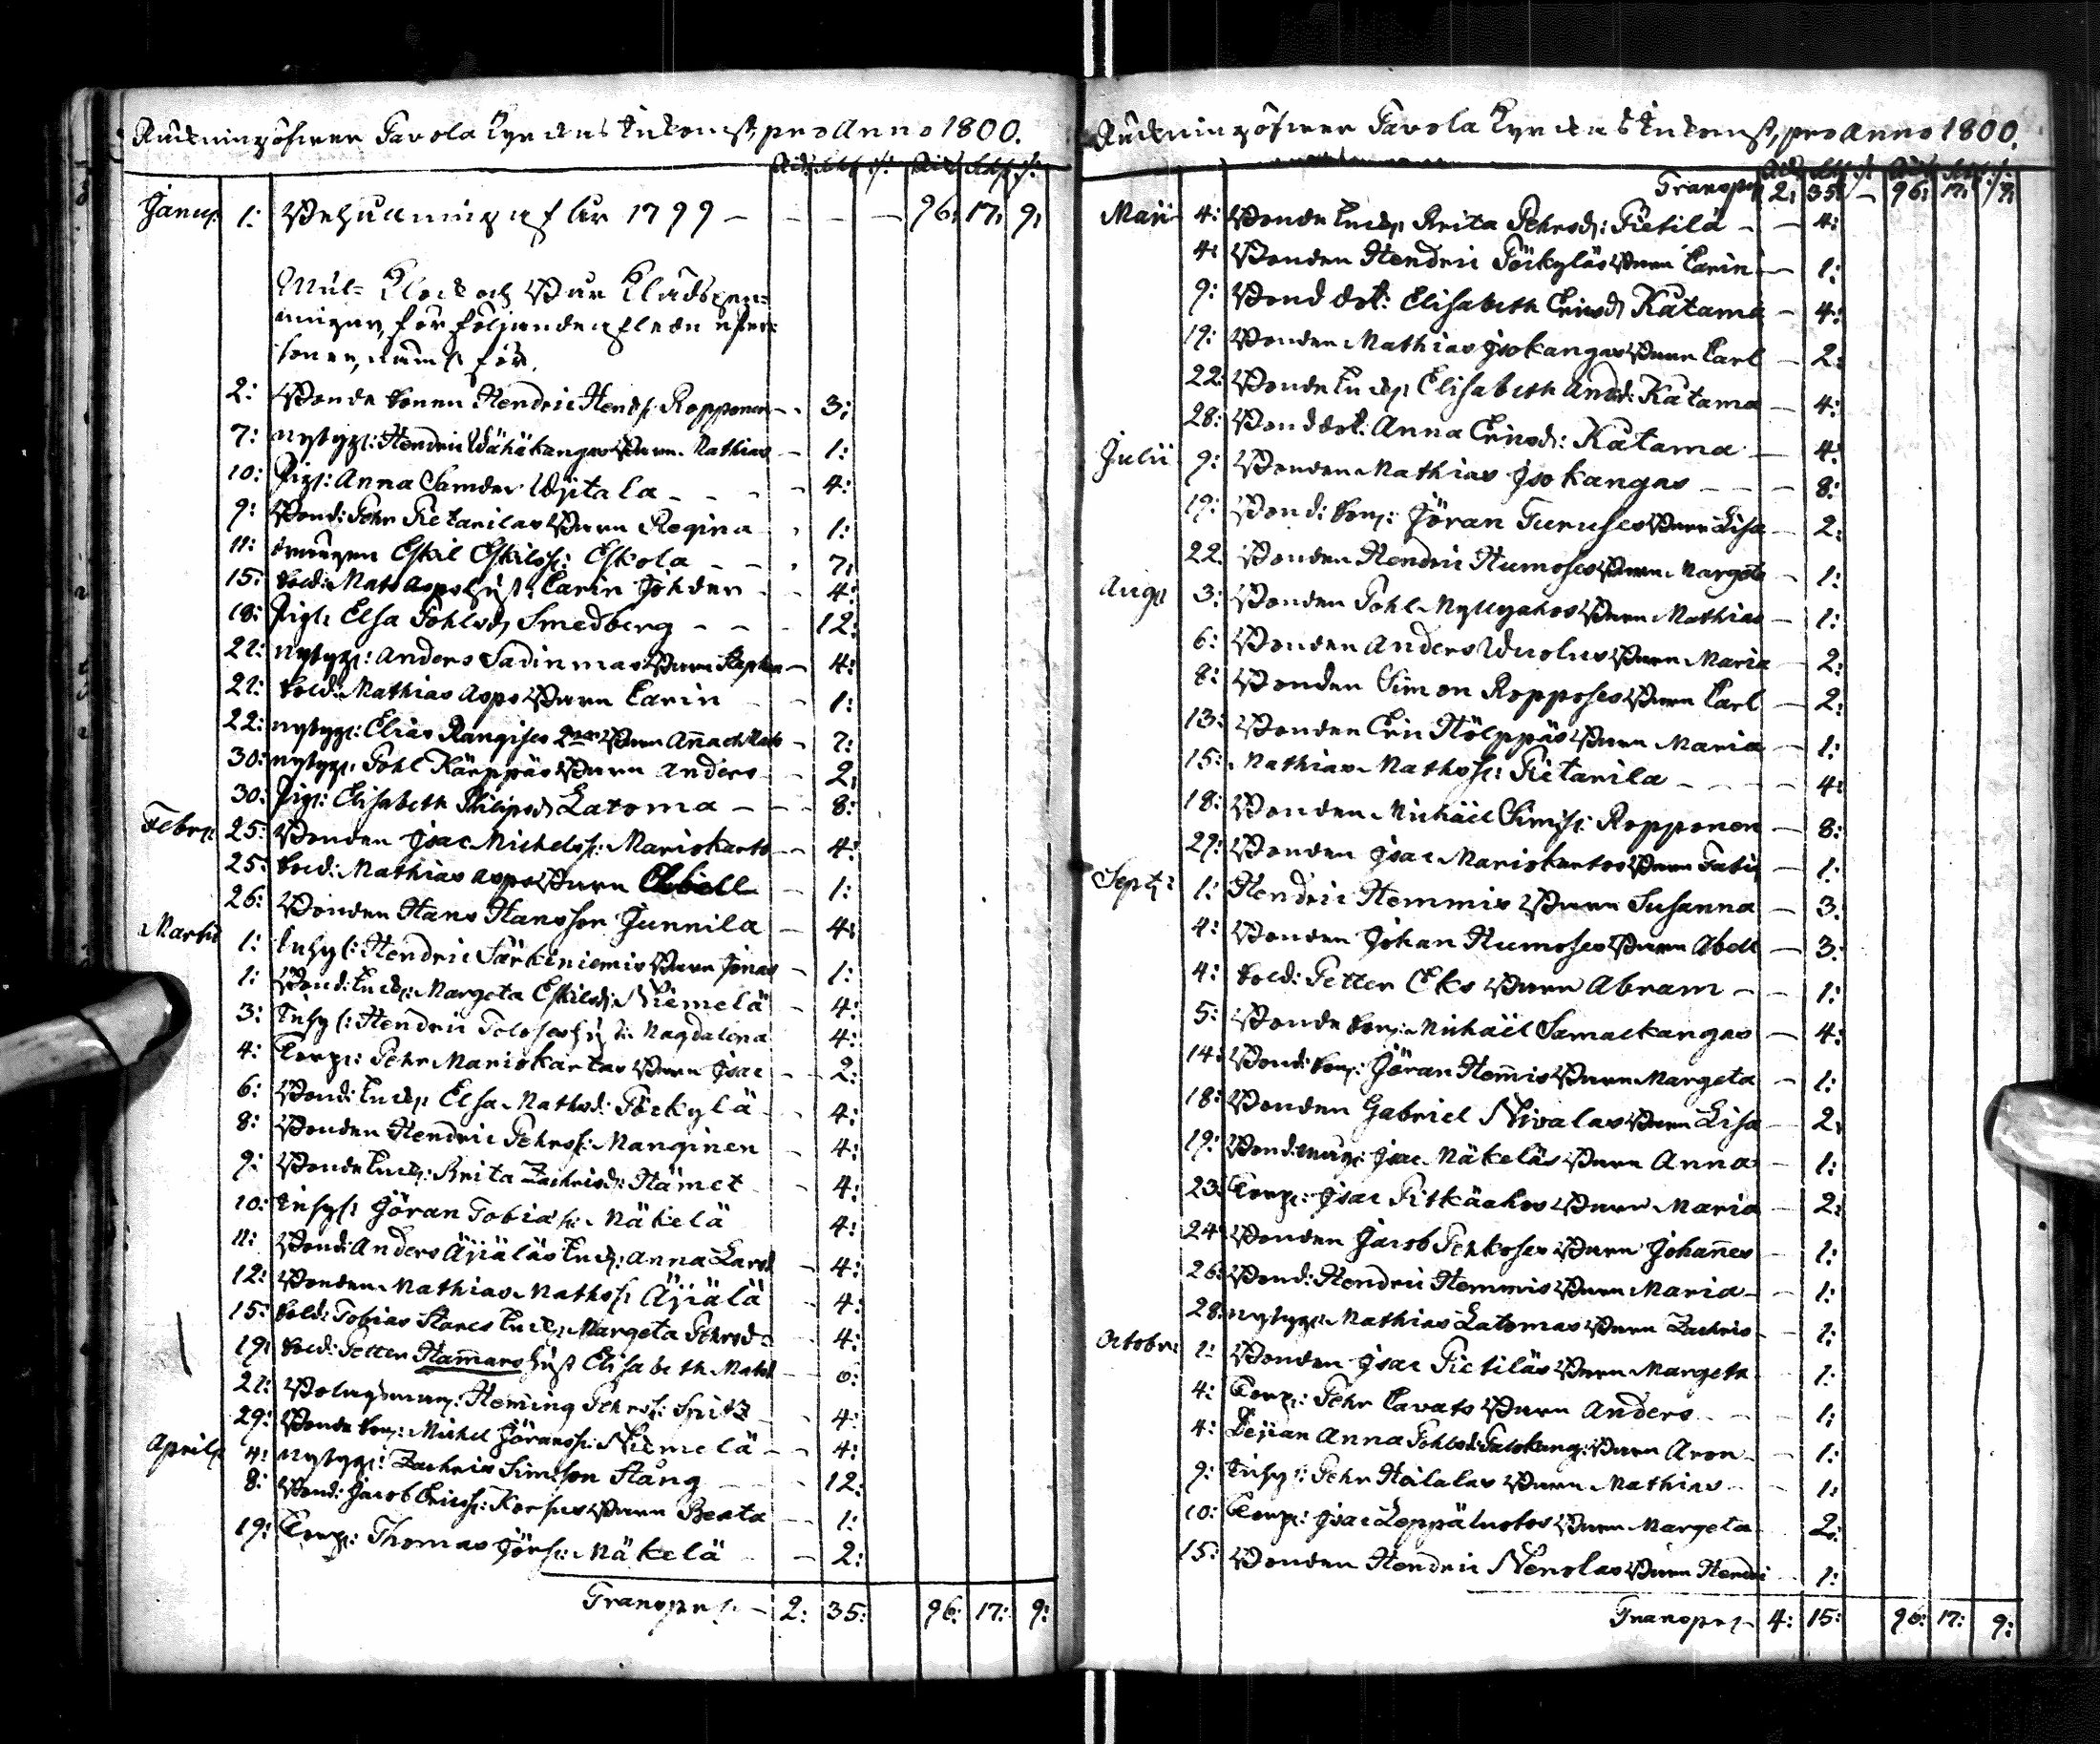 Räckning öfwer Pavola Kyrckas Inkomst, pro Anno 1800.
Rd: sk: r:  Rd: sk: r:
Janu: 1: Behållning af År 1799 — 96: 17: 9:
Mull= Klock och Bår Klädspen=
ningar, för följande aflednе per=
soner, nämst för.
2: Bonde sonen Hendric Hends: Ropponen — 3:
7: nybygg: Hendric Wähäkangas Barn Mathias — 1:
10: Pig: Anna Samdr Wijtala — 4:
9: Bond: Pehr Pietarilas Barn Regina — 1:
11: drängen Eskil Eskilss: Eskola — 7:
15: Sold: Mats Asps hust: Carin Johdr — 4:
18: Pig: Elsa Pohlsd Smedberg — 12:
21: nybygg: Anders Sadinmas Barn Stephan — 4:
21: Sold: Mathias Asps Barn Carin — 1:
22: nybygg: Elias Kangises 2ne Barn Anna och Mats — 7:
30: nybygg: Pohl Kärppäs Barn Anders — 2:
30: Pig: Elisabeth Philipsd Latoma — 8:
Febru: 25: Bonden Isac Michelss: Mariskarts — 4:
25: Sold: Mathias Asps Barn Abell — 1:
26: Bonden Hans Hansson Junnila — 4:
Martii 1: Inhys: Hendric Särkiniemis Barn Jonas — 1:
1: Bond: Enck: Margeta Eskilsd: Niemelä — 4:
3: Inhys: Hendric Poloses hust: Magdalena — 4:
4: Torp: Pehr Mariskartas Barn Isac — 2:
6: Bond: Enck: Elsa Mathsd: Pöckylä — 4:
8: Bonden Hendric Pehrss: Manginen — 4:
9: Bonde Enck: Brita Zachrisd: Hämet — 4:
10: Inhys: Jöran Tobias s: Mäkelä — 4:
11: Bond: Anders Äijäläs Enck: Anna Larsd — 4:
12: Bonden Mathias Mathss: Äijälä — 4:
15: Sold: Tobias Starcs Enck: Margeta Pehrsd: — 4:
19: Sold: Petter Hammars hust Elisabeth Matsd — 0:
21: Bolagsman: Heming Pehrss: Spitz — 4:
29: Bonde Son: Michel Jöranss: Niemelä — 4:
April: 4: nybygg: Zachris Simsson Stång — 12:
8: Bond: Jacob Ericss: Korhus Barn Beata — 1:
19: Torp: Thomas Jörs: Mäkelä — 2:
Transport — 2: 35: 96: 17: 9:
Räckning öfwer Pavola Kyrckas Inkomst, pro Anno 1800.
Rd: sk: r:  Rd: sk: r:
Transport 2: 35: — 96: 17: 9:
Maji 4: Bonde Enck: Brita Pehrsd: Pietilä — 4:
4: Bonden Hendric Pöckyläs Barn Carin — 1:
9: Bond dot: Elisabeth Ericsd Katama — 4:
19: Bonden Mathias Isokangas Barn Carl — 2:
22: Bonde Enck: Elisabeth Andd: Katama — 4:
28: Bond dot: Anna Ericsd: Katama — 4:
Julii 9: Bonden Mathias Isokangas — 8:
19: Bond: Son: Jöran Turuses Barn Lisa — 2:
22 Bonden Hendric Humoses Barn Margeta — 1:
Aug: 3: Bonden Pohl Myllyahos Barn Mathias — 1:
6: Bonden Anders Wuolus Barn Maria — 2:
8: Bonden SimonRopposes Barn Carl — 2:
13: Bonden Eric Hölppäs Barn Maria — 1:
15: Mathias Mathss: Pietarila — 4:
18: Bonden Michäel Sims: Ropponen — 8:
29: Bonden Isac Mariskartas Barn — 1:
Sept: 1: Hendric Hemmis Barn Susanna — 3:
4: Bonden Johan Humoses Barn Abell — 3:
4: Sold: Petter Eks Barn Abram — 1:
5: Bonde Son: Michäel Samackangas — 4:
14: Bond: Son: Jöran Hemis Barn Margeta — 1:
18: Bonden Gabriel Nivalas Barn Lisa — 2:
19: Bond: mag: Isac Mäkeläs Barn Anna — 1:
23: Torp: Isac Pitkäahos Barn Maria — 2:
24: Bonden Jacob Penkoses Barn Johannes — 1:
26: Bond: Hendric Hemmis Barn Maria — 1:
28: nybygg: Mathias Latomas Barn Zachris — 1:
Octobr: 1: Bonden Isac Pietiläs Barn Margeta — 1:
4: Torp: Pehr Cavats Barn Anders — 1:
4: Pejian Anna Pohlsd: Palokang: Barn Aron — 1:
9: Inhys: Pehr Hailalas Barn Mathias — 1:
10: Torp: Isac Leppäluotos Barn Margeta — 2:
15: Bonden Hendric Nerolas Barn Hendric — 1:
Transport — 4: 15: 96: 17: 9: